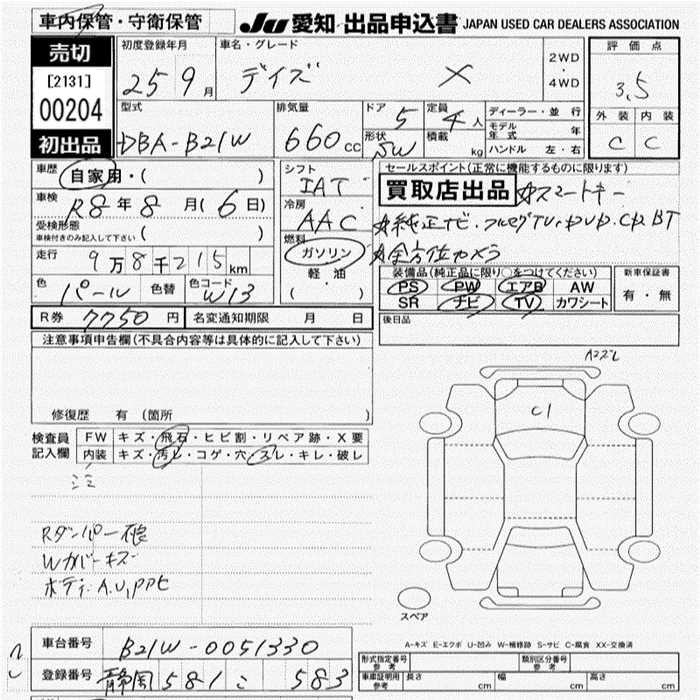 車内保管・守衛保管
JU 愛知 出品申込書 JAPAN USED CAR DEALERS ASSOCIATION
売切
[2131]
00204
初出品
初度登録年月
25 9月
車名・グレード
デイズ X
2WD
・
4WD
評価点
3.5
外装 内装
C C
型式
DBA-B21W
排気量
660 cc
ドア 5
形状 SW
定員 4人
積載 kg
ディーラー・並行
モデル年式 年
ハンドル 左・右
車歴 自家用・( )
車検 R8年8月(6日)
受検形態
車検付きのみ記入して下さい ( )
走行 9万8千215km
色 パール 色替 色コード W13
シフト IAT
冷房 AAC
燃料
ガソリン
軽油
( ・ )
セールスポイント(正常に機能するものに限ります)
買取店出品 ☆スマートキー
☆純正ナビ・フルセグTV・DVD・CD・BT
☆全方位カメラ
装備品(純正品に限り○をつけてください)
PS PW エアB AW
SR ナビ TV カワシート
新車保証書
有・無
R券 7750円 名変通知期限 月 日
後日品
注意事項申告欄(不具合内容等は具体的に記入して下さい)
修復歴 有 (箇所 )
検査員記入欄
FW キズ・飛石・ヒビ割・リペア跡・X要
内装 キズ・汚レ・コゲ・穴・スレ・キレ・破レ
注
Rダンパー
Wカバーキズ
ボディA,U,PPヒ
C1
スペア
A-キズ E-エクボ U-凹み W-補修跡 S-サビ C-腐食 XX-交換済
車台番号 B21W-0051330
登録番号 静岡 581 こ 583
形式指定番号 参考
類別区分番号 参考
車庫証明用 参考 長さ cm 幅 cm 高さ cm